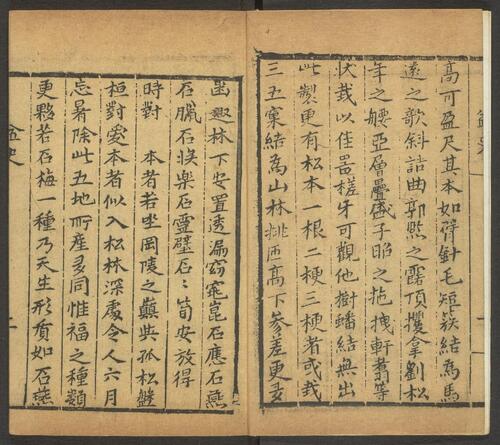 高可盈尺其本如臂針毛短簇結為馬
遠之歌斜詰曲郭熙之露頂攫拿劉松
年之㛂亞層疊盛子昭之拖拽軒翥等
狀栽以佳器槎牙可觀他樹蟠結無出
此製更有松本一根二梗三梗者或栽
三五窠結為山林排匝高下參差更多
幽趣林下安置透漏窈窕崑石應石燕
石臘石將樂石靈璧石石筍安放得
時對 本者若坐岡陵之巔與孤松盤
桓對雙本者似入松林深處令人六月
忘暑除此五地所產多同惟福之種類
更夥若石梅一種乃天生形質如石燕